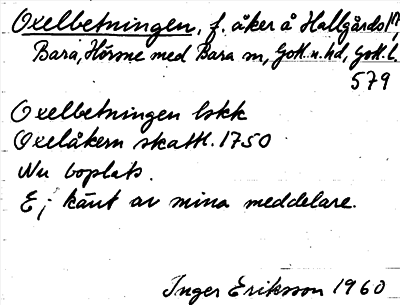 Oxelbetningen, f. åker å Hallgårds 1⁄4
Bara, Hörsne med Bara sn, Gotl. n. hd, Gotl. l.
579
Oxelbetningen lskk
Oxelåkern skattl. 1750
Nu boplats.
Ej känt av mina meddelare.
Inger Eriksson 1960